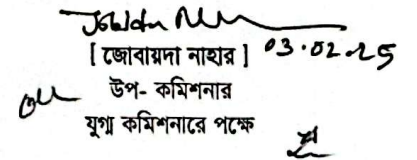 [ জোবায়দা নাহার ] 03.02.25
উপ- কমিশনার
যুগ্ম কমিশনারে পক্ষে